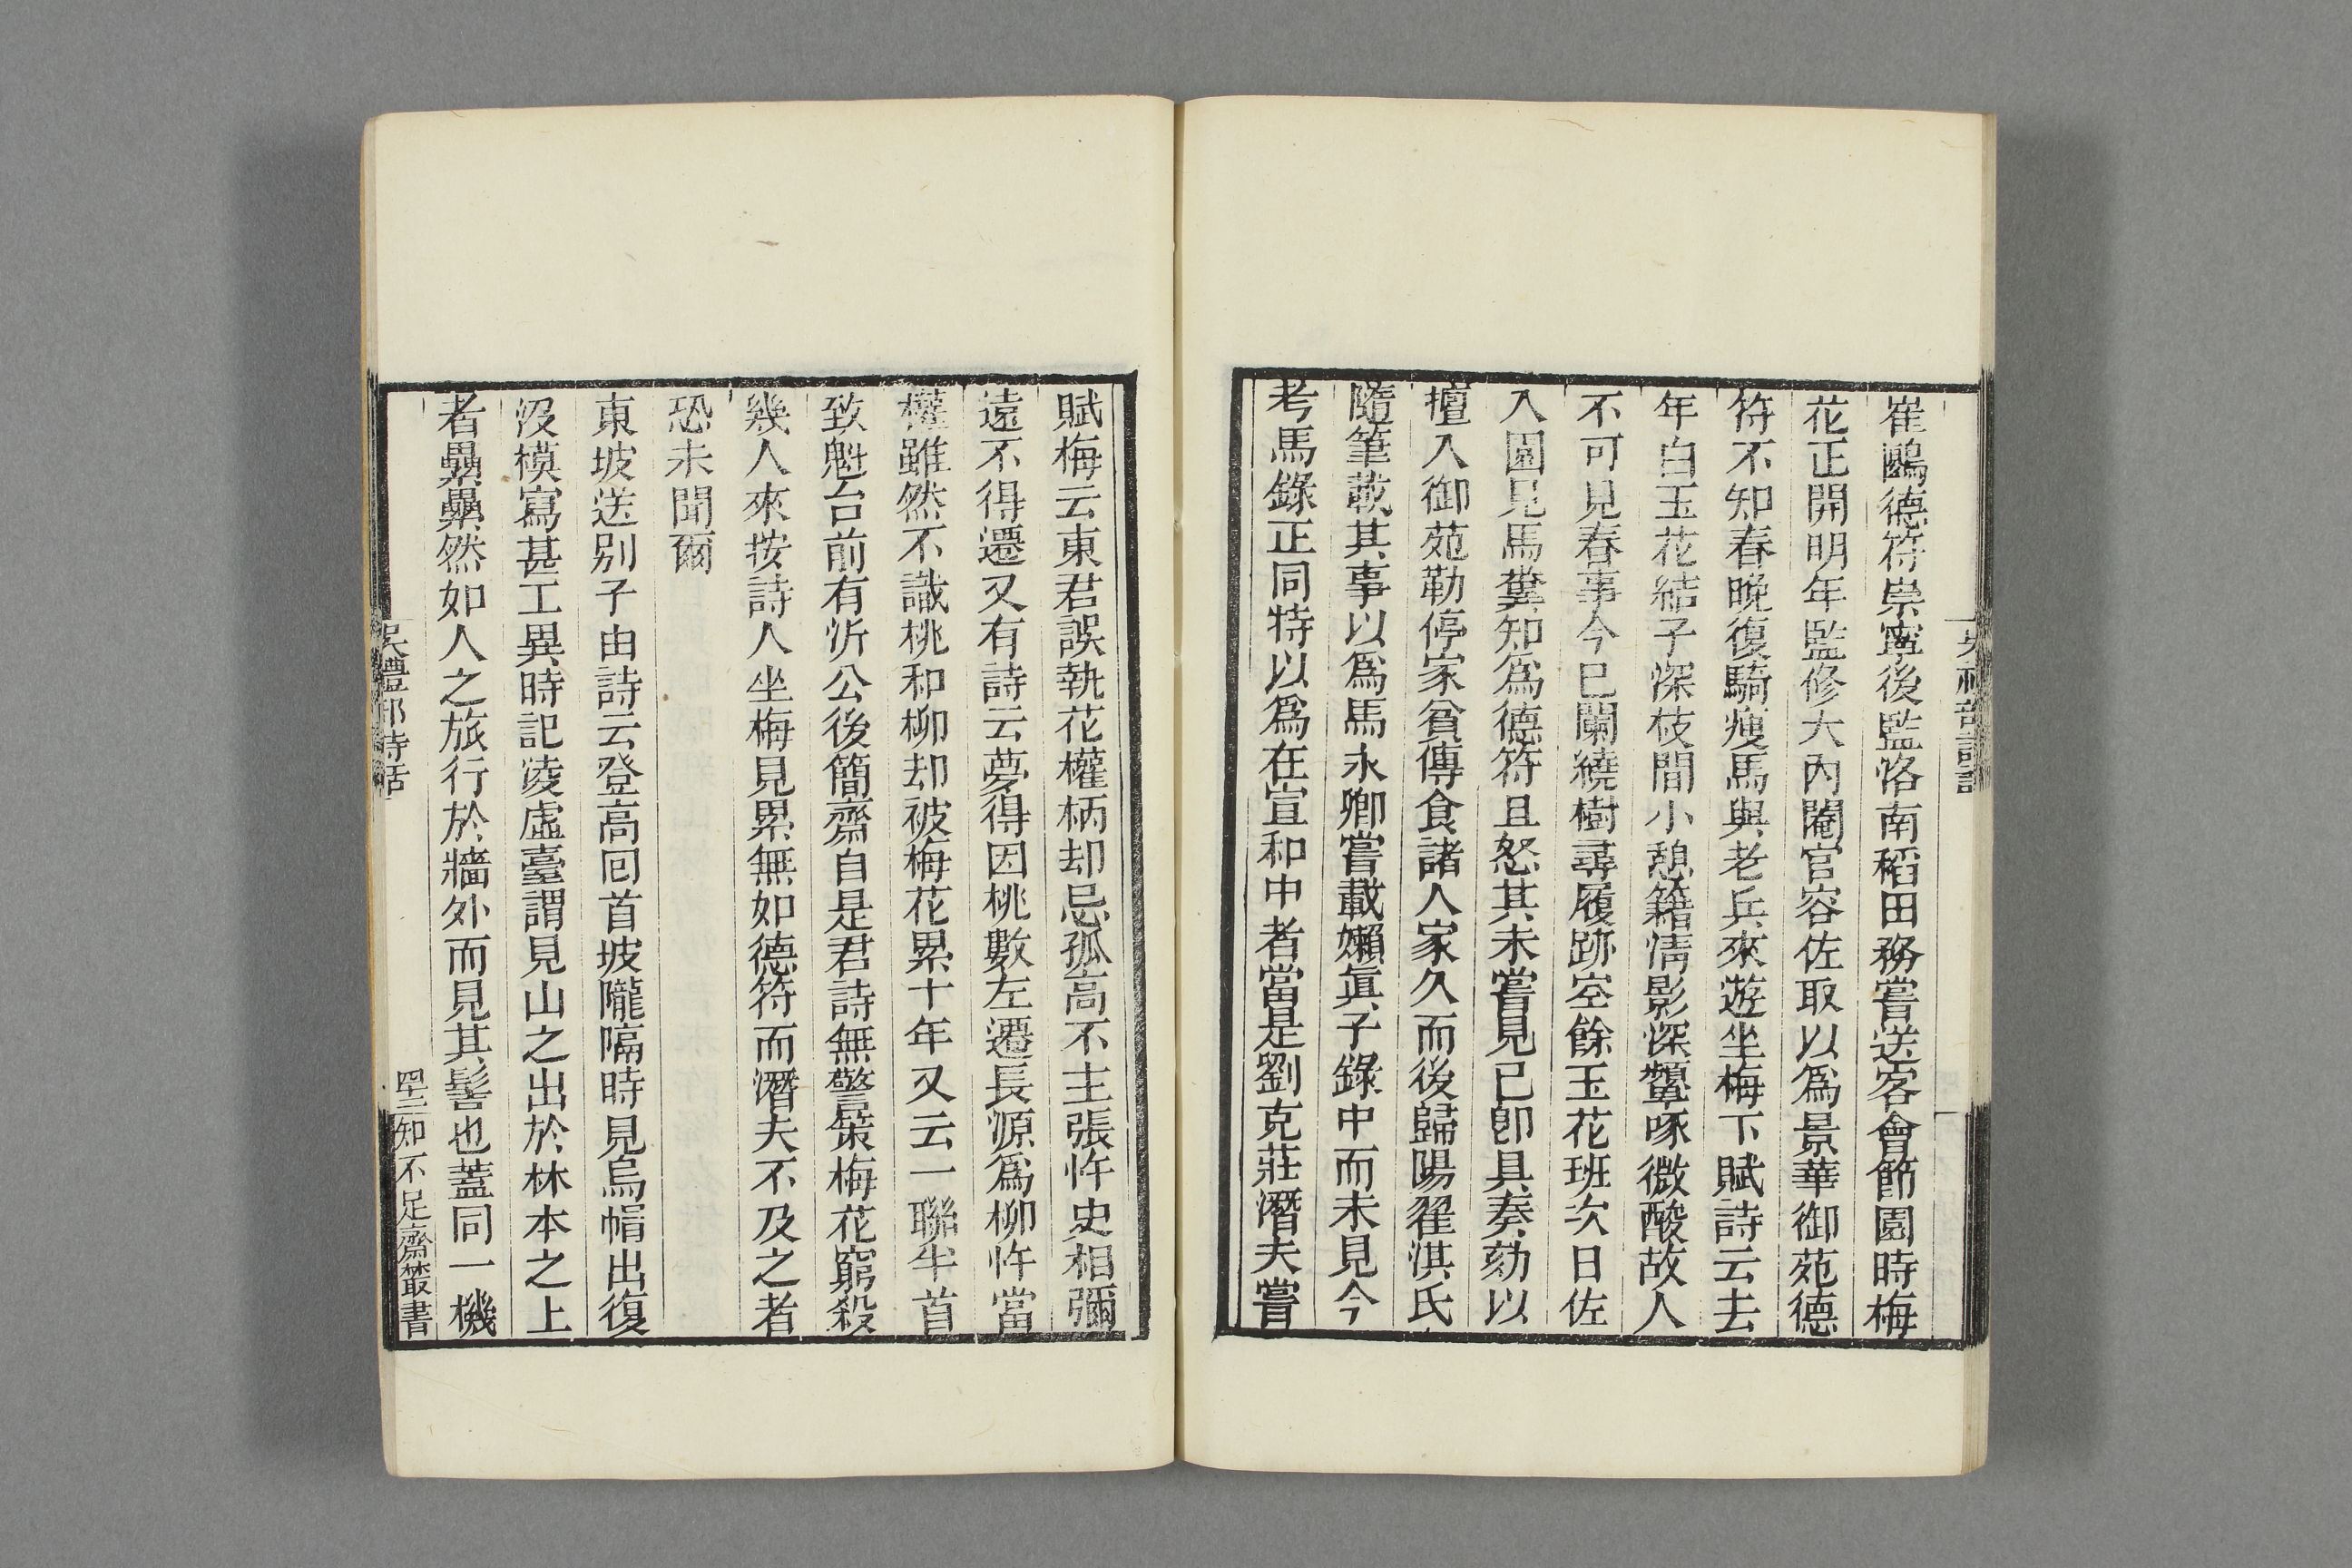 崔鷗德符崇寧後監洛南稻田務嘗送客會節園時梅
花正開明年監修大內閹官容佐取以爲景華御苑德
符不知春晚復騎瘦馬與老兵來遊坐梅下賦詩云去
年白玉花結子深枝間小憩籍清影深顰啄微酸故人
不可見春事今已闌繞樹尋履跡空餘玉花班次日佐
入園見馬糞知爲德符且怒其未嘗見已卽具奏劾以
擅入御苑勒停家貧傳食諸人家久而後歸陽翟淇氏
隨筆載其事以爲馬永卿嘗載嬾眞子錄中而未見今
考馬錄正同特以爲在宣和中者當是劉克莊潛夫嘗
賦梅云東君誤執花權柄却忌孤高不主張忤史相彌
遠不得遷又有詩云夢得因桃數左遷長源爲柳忤當
權雖然不識桃和柳却被梅花累十年又云一聯半首
致魁台前有沂公後簡齋自是君詩無警策梅花窮殺
幾人來按詩人坐梅見累無如德符而潛夫不及之者
恐未聞爾
東坡送別子由詩云登高回首坡隴隔時見烏帽出復
沒模寫甚工異時記凌虛臺謂見山之出於林本之上
者纍纍然如人之旅行於牆外而見其髻也蓋同一機
吳禮部詩話
四十三知不足齋叢書